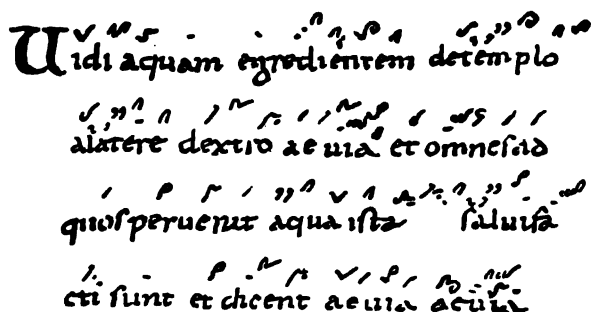 Uidi aquam egredientem detemplo
alatere dextro aeuia et omnesad
quosperuenit aqua ista saluifa
cti sunt et dicent aeuia aeuia